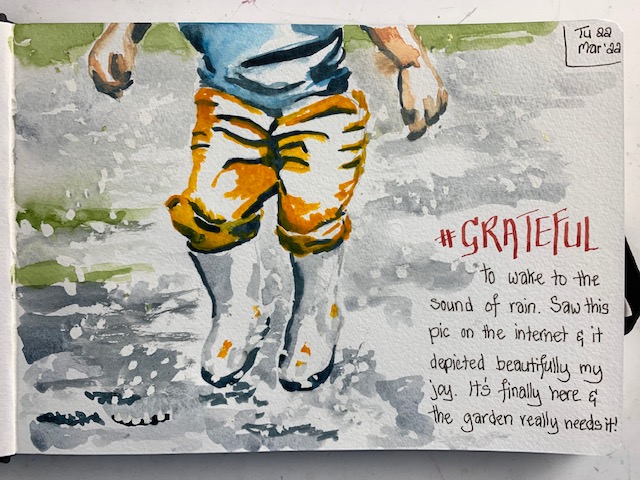 Tu 22
Mar '22
#GRATEFUL
to wake to the
sound of rain. Saw this
pic on the internet & it
depicted beautifully my
joy. It's finally here &
the garden really needs it!